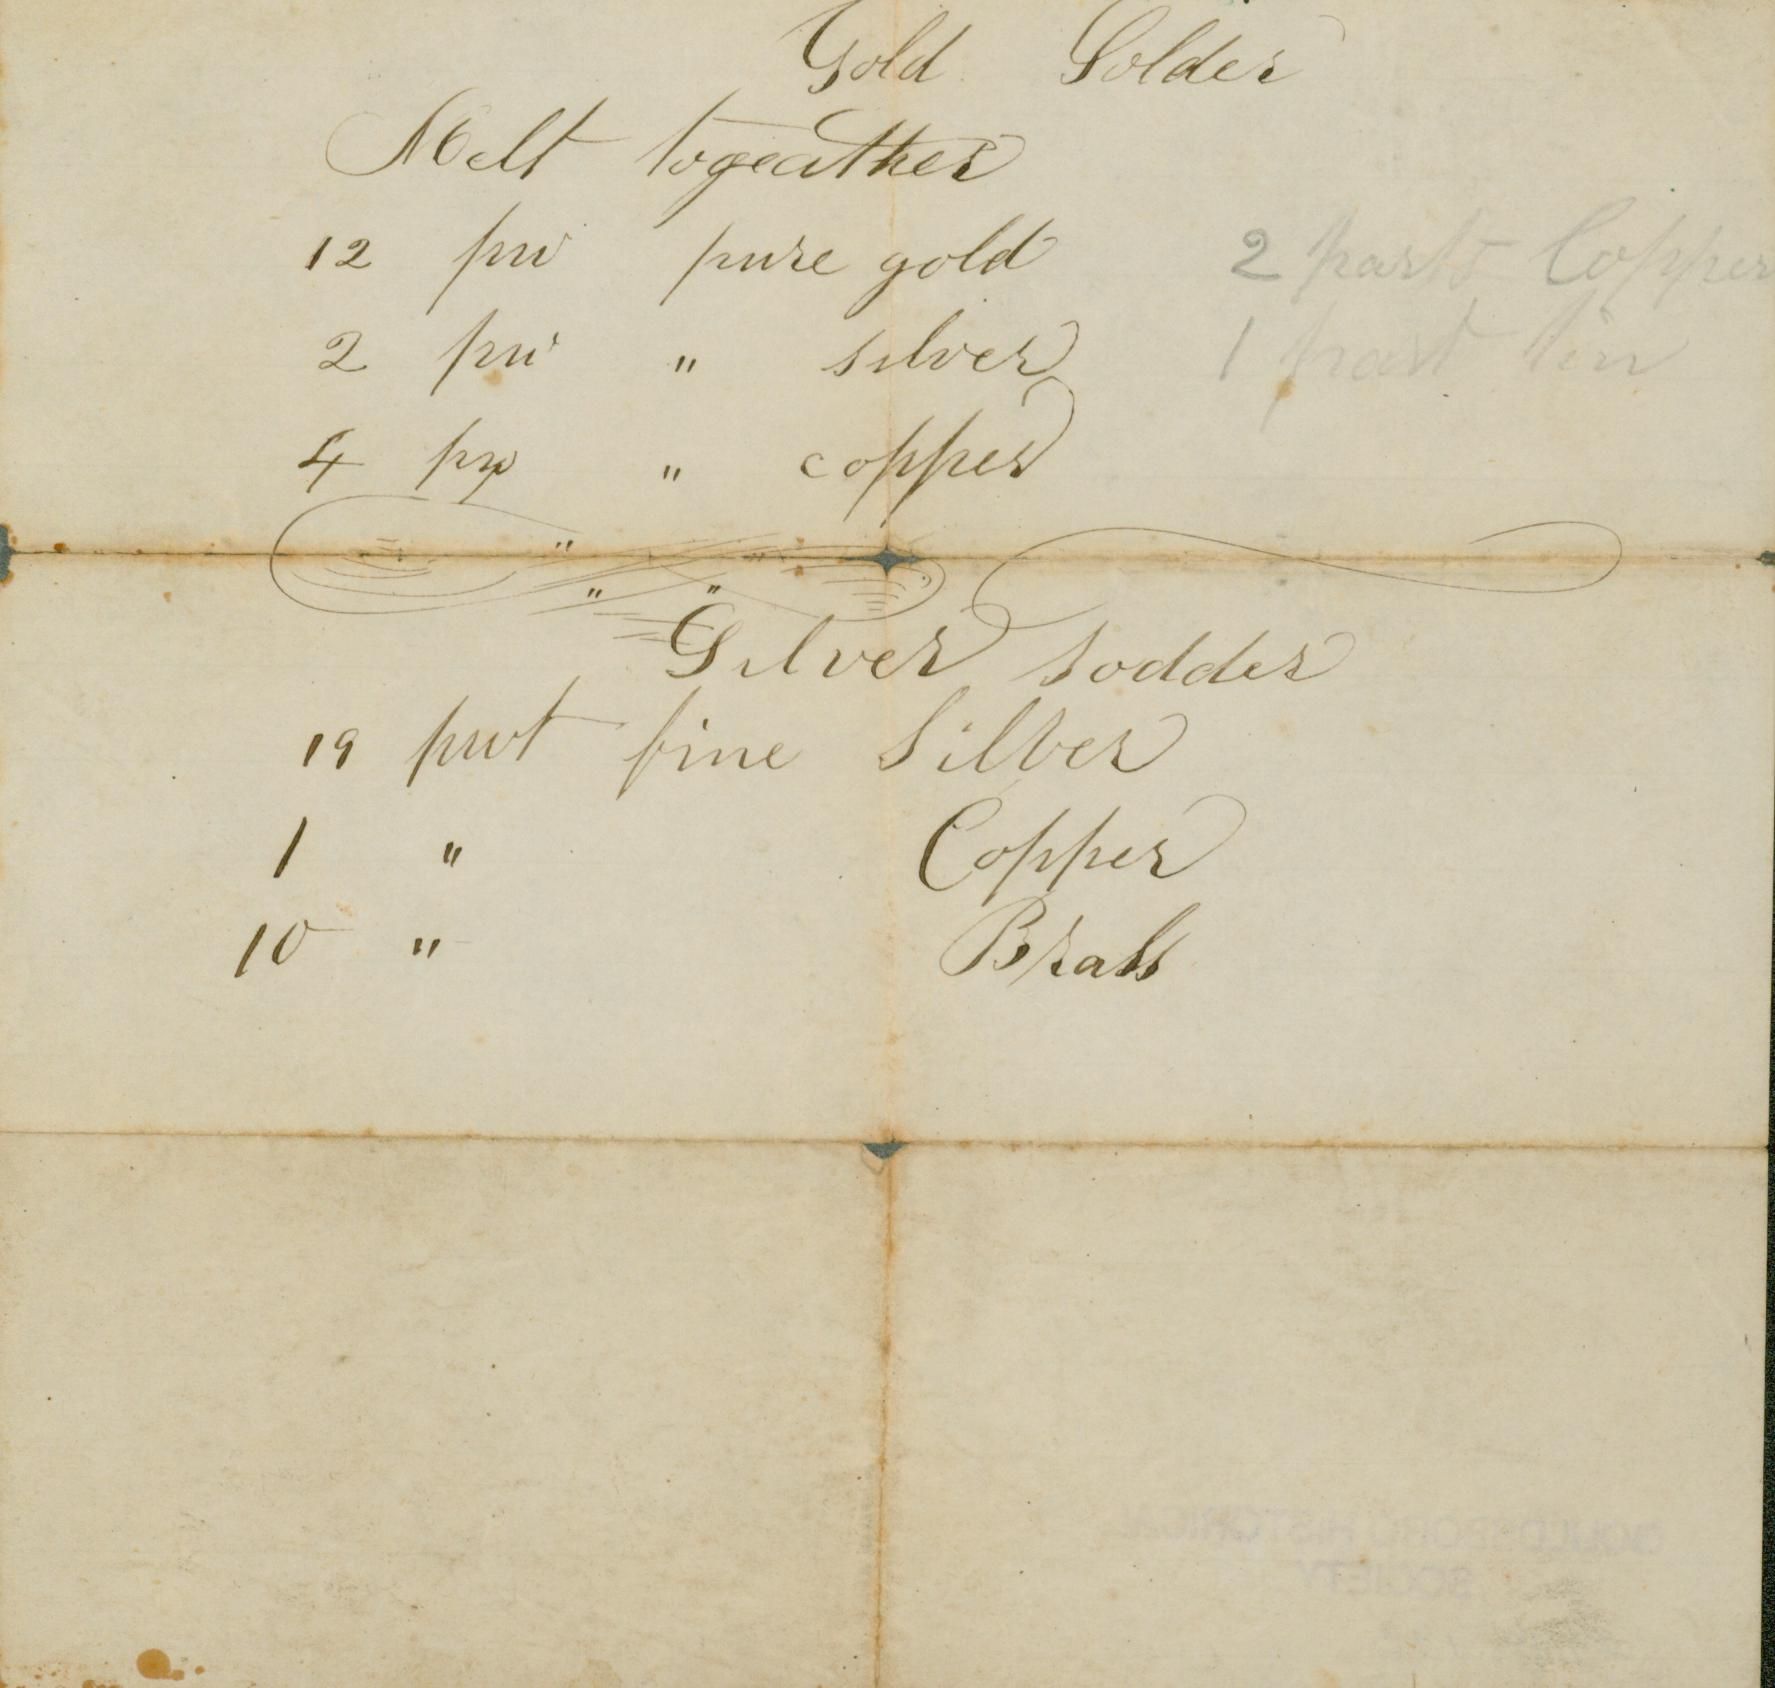 Gold Solder
Melt togeather
12 pw pure gold
2 parts Copper
2 pw " silver
1 part tin
4 pw " copper
Silver sodder
19 pwt fine Silver
1 " Copper
10 " Brass
GOULDSBORO HISTORICAL
SOCIETY